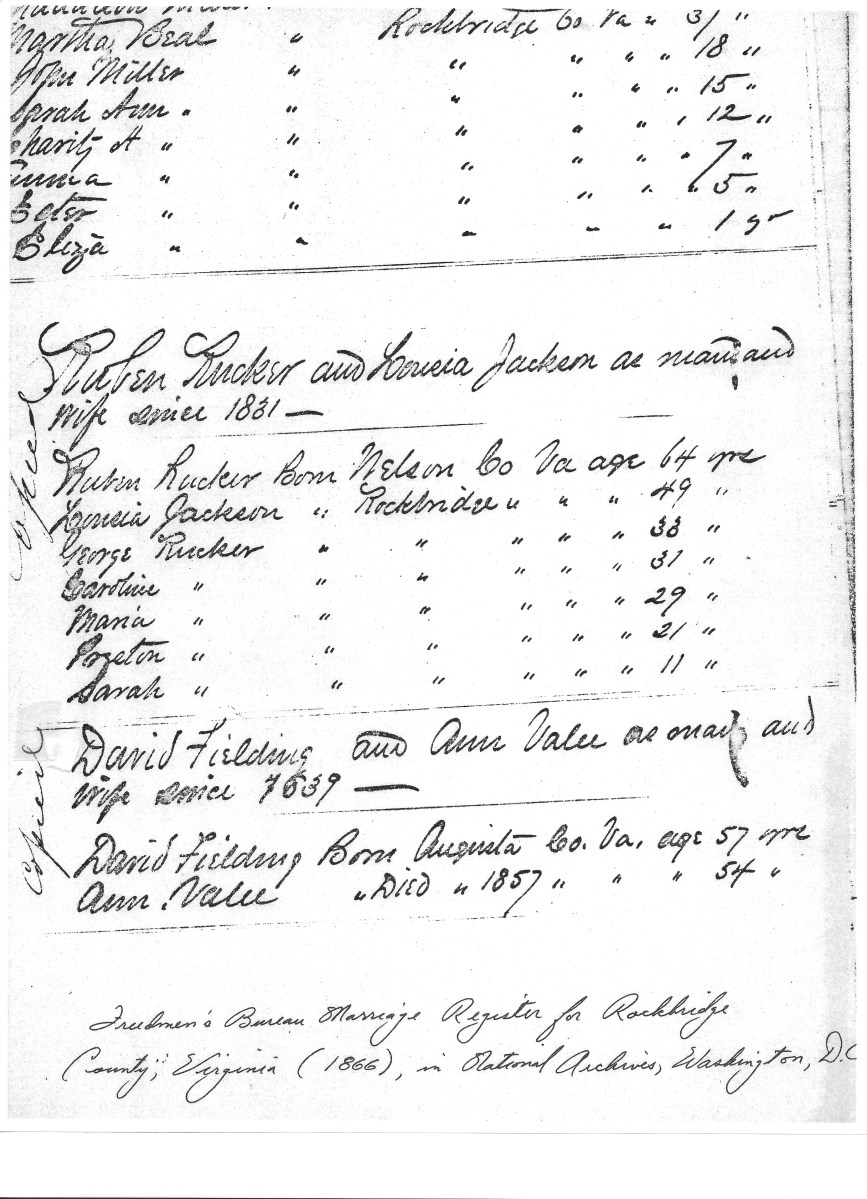 Martha Beal " Rockbridge Co Va " 31 "
John Miller " " " " " 18 "
Sarah Ann " " " " " " 15 "
Charity A " " " " " " 12 "
" " " " " " 7 "
Peter " " " " " " 5 "
Eliza " " " " " 1 yr
Ruben Rucker and Loucia Jackson as man and
wife since 1831 —
Ruben Rucker Born Nelson Co Va age 64 yrs
Loucia Jackson " Rockbridge " " " 49 "
George Rucker " " " " " 33 "
Caroline " " " " " " 31 "
Maria " " " " " " 29 "
Preston " " " " " " 21 "
Sarah " " " " " " 11 "
copied
David Fielding and Ann Valee as man and
wife since 1839 —
David Fielding Born Augusta Co. Va. age 57 yrs
Ann Valee " Died " 1857 " " " 54 "
copied
Freedmen's Bureau Marriage Register for Rockbridge
County, Virginia (1866), in National Archives, Washington, D.C